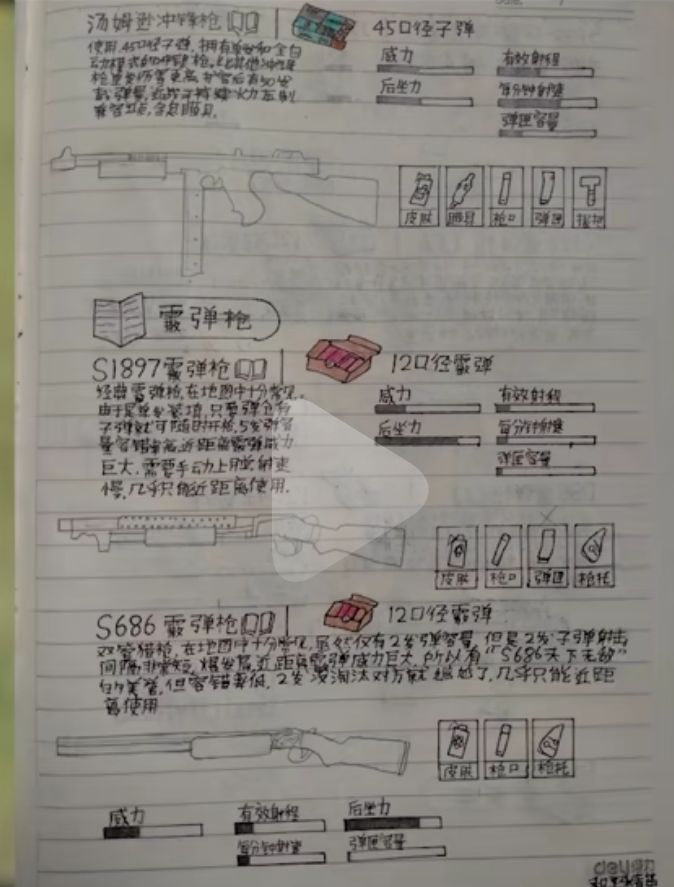 汤姆逊冲锋枪
45口径子弹
使用.45口径子弹,拥有单发和全自
动模式的冲锋枪,比其他冲锋
威力
有效射程
后坐力
每分钟射速
弹匣容量
皮肤 瞄具 枪口 弹匣 握把
霰弹枪
S1897霰弹枪
12口径霰弹
经典霰弹枪,在地图中十分常见,
子弹就可随时开枪,5发弹容
量容错率高,近距离霰弹威力
巨大,需要手动上膛,射速
慢,几乎只能近距离使用.
威力
有效射程
后坐力
每分钟射速
弹匣容量
皮肤 枪口 弹匣 枪托
S686霰弹枪
12口径霰弹
双管猎枪,在地图中十分常见,虽然仅有2发弹容量,但是2发子弹射击
间隔非常短,爆发高,近距离霰弹威力巨大,所以有“S686天下无敌”
的美誉,但容错率低,2发没淘汰对方就尴尬了,几乎只能近距
离使用
皮肤 枪口 枪托
威力
有效射程
后坐力
每分钟射速
弹匣容量
deyan